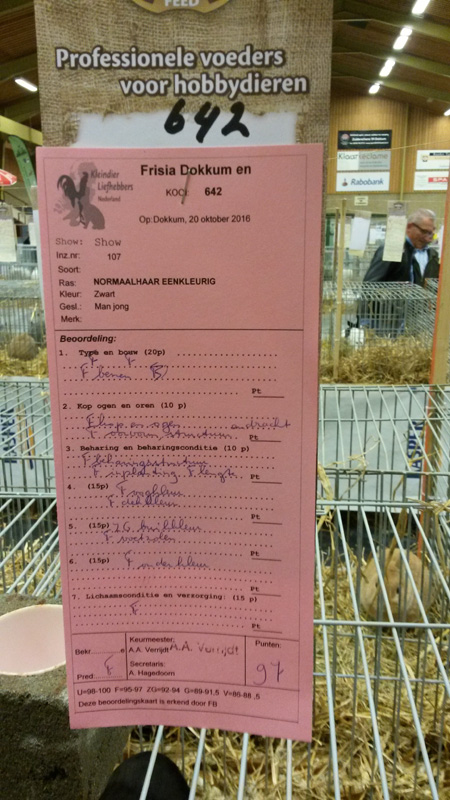 FEED
Professionele voeders
voor hobbydieren
642
Kleindier
Liefhebbers
Nederland
Frisia Dokkum en
KOCK 642
Op:Dokkum, 20 oktober 2016
Show: Show
Inz.nr: 107
Soort:
Ras: NORMAALHAAR EENKLEURIG
Kleur: Zwart
Gesl.: Man jong
Merk:
Beoordeling:
1. Type en bouw (20p)
F F
F benen B
Pt
2. Kop ogen en oren (10 p)
F kop en ogen
F oorvorm
Pt
3. Beharing en beharingsconditie (10 p)
F
F inplanting F lengte
Pt
4. (15p) F rugkleur
F dekkleur
Pt
5. (15p) ZG buikkleur
F voetzolen
Pt
6. (15p) F onderkleur
Pt
7. Lichaamsconditie en verzorging: (15 p)
F
Pt
Bekr. e
Pred. F
Keurmeester:
A.A. Verrijdt A.A. Verrijdt
Secretaris:
A. Hagedoorn
Punten:
97
U=98-100 F=95-97 ZG=92-94 G=89-91,5 V=86-88 ,5
Deze beoordelingskaart is erkend door FB
Klaar reclame
Rabobank